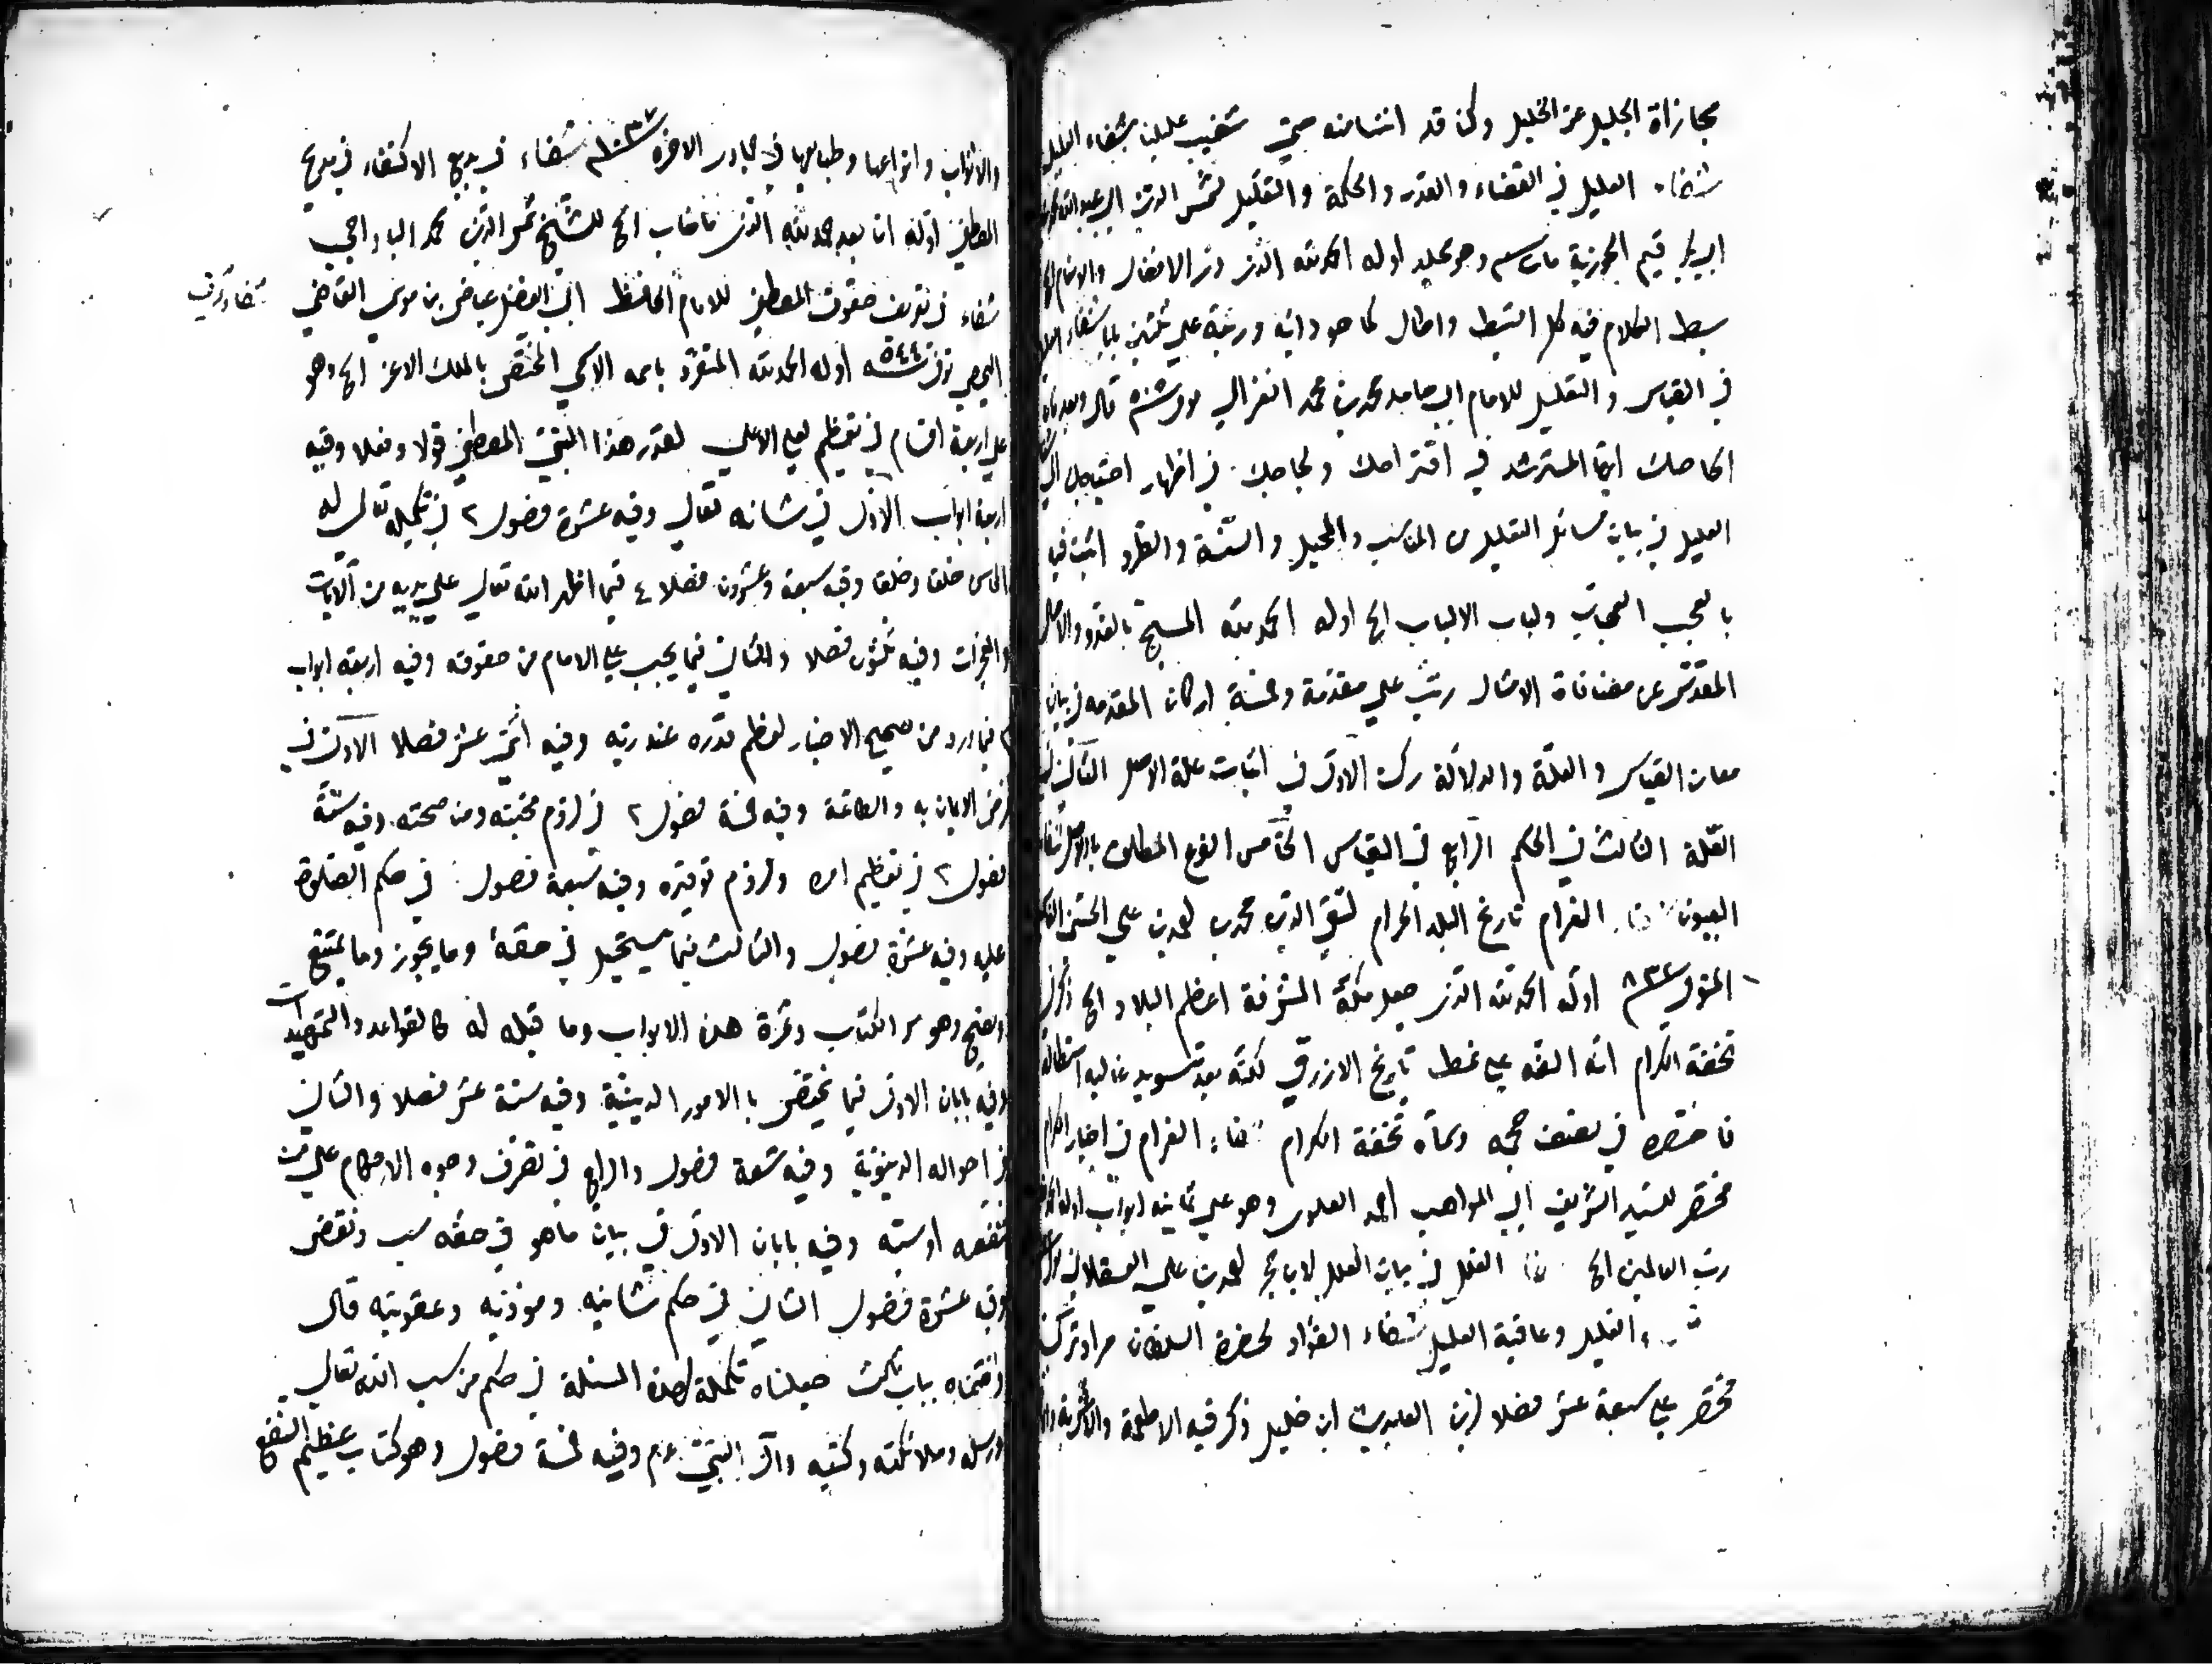 مجازاة الجليل عن الخليل وكنا قد انتسامنه حتى شغيب عليلنا بشفاء الغليل
شفاء العليل في القضاء والقدر والحكمة والتعليل لشمس الدين ابي عبد الله محمد بن
ابي بكر قيم الجوزية مات سـ وهو مجلد اوله الحمد لله الذي ذي الافضال والانعام الخ
بسط الكلام فيه كل البسط واطال كما هو دأبه ورتبه على ثلثين بابا شفاء الغليل
في القياس والتعليل للامام ابي حامد محمد بن محمد الغزالي
الحاحك ايها المسترشد في اقتراحك ولجاجك في اظهار احتياجك الى
العليل في بيان مسائل التعليل من المناسب والمخيل والشبه والطرد اثبت فيها
بالعجب العجاب ولباب الالباب الخ اوله الحمد لله المسبح بالغدو والآصال
المقدس عن مضاهاة الامثال رتب على مقدمة وخمسة اركان المقدمه في بيان
معان القياس والعلة والدلالة ركن الاول في اثبات علة الاصل الثاني في
العلة الثالث في الحكم الرابع في القياس الخامس الفرع الملحق بالاصل شفاء
العيون الغرام تاريخ البلد الحرام لتقي الدين محمد بن احمد بن علي الحسني الفاسي
المتوفى ٨٣٢ اوله الحمد لله الذي جعل مكة المشرفة اعظم البلاد الخ ذكر في
تحفة الكرام انه الفه على نمط تاريخ الازرقي لكنه بعد تسويد غالبه استطاله
فاختصره في نصف حجمه وسماه تحفة الكرام شفاء الغرام في اخبار الكرام
مختصر للسيد الشريف ابي المواهب احمد العلوي وهو على ثمانيه ابواب اوله الحمد لله
رب العالمين الخ الغلل في بيان العلل لابن حجر احمد بن علي العسقلاني
الغليل وعافية العليل شفاء الفؤاد لحضرة السلطان مراد تركي
مختصر على سبعة عشر فصلا لزين العابدين ابن خليل ذكر فيه الاطعمة والاشربة
والاثواب وانواعها وطبايعها في جمادى الاخره ١٠٣٧ شفاء في بديع الاكتفاء في مدح
المصطفى اوله اما بعد حمد الله الذي ما خاب الخ للشيخ شمس الدين محمد النواجي
شفاء في تعريف حقوق المصطفى للامام الحافظ ابي الفضل عياض بن موسى القاضي
اليحصبي توفى ٥٤٤ سنه اوله الحمد لله المتفرد باسمه الاسمى المختص بالملك الاعز الخ وهو
على اربعة اقسام في تعظيم العلي الاعلى لقدر هذا النبي المصطفى قولا وفعلا وفيه
اربعة ابواب الاول في شانه تعالى وفيه عشرة فصول ٢ في تكميله تعالى له
المحاسن خلقا وخلقا وفيه سبعة وعشرون فصلا ٤ فيما اظهر الله تعالى على يديه من الآيات
والمعجزات وفيه ثلثون فصلا والثاني فيما يجب على الانام من حقوقه وفيه اربعة ابواب
٣ فيما ورد من صحيح الاخبار لعظم قدره عند ربه وفيه اثنى عشر فصلا الاول في
فرض الايمان به والطاعة وفيه خمسة فصول ٢ في لزوم محبته ومناصحته وفيه ستة
فصول ٢ في تعظيم امره ولزوم توقيره وفيه سبعة فصول في حكم الصلوة
عليه وفيه عشرة فصول والثالث فيما يستحيل في حقه وما يجوز وما يمتنع
ويصح وهو سر الكتاب وثمرة هذه الابواب وما قبله له كالقواعد والتمهيدات
وفيه بابان الاول فيما يختص بالامور الدينية وفيه ستة عشر فصلا والثاني
في احواله الدنيوية وفيه تسعة فصول والرابع في تصرف وجوه الاحكام على من
تنقصه او سبه وفيه بابان الاول في بيان ما هو في حقه سب ونقص
وفيه عشرة فصول الثاني في حكم شانيه وموذيه وعقوبته قال
واختمناه بباب ثالث جعلناه تكملة لهذه المسئلة في حكم من سب الله تعالى
ورسله وملائكته وكتبه وآل النبي عم وفيه خمسة فصول وهو كتاب عظيم النفع
شفاء شريف